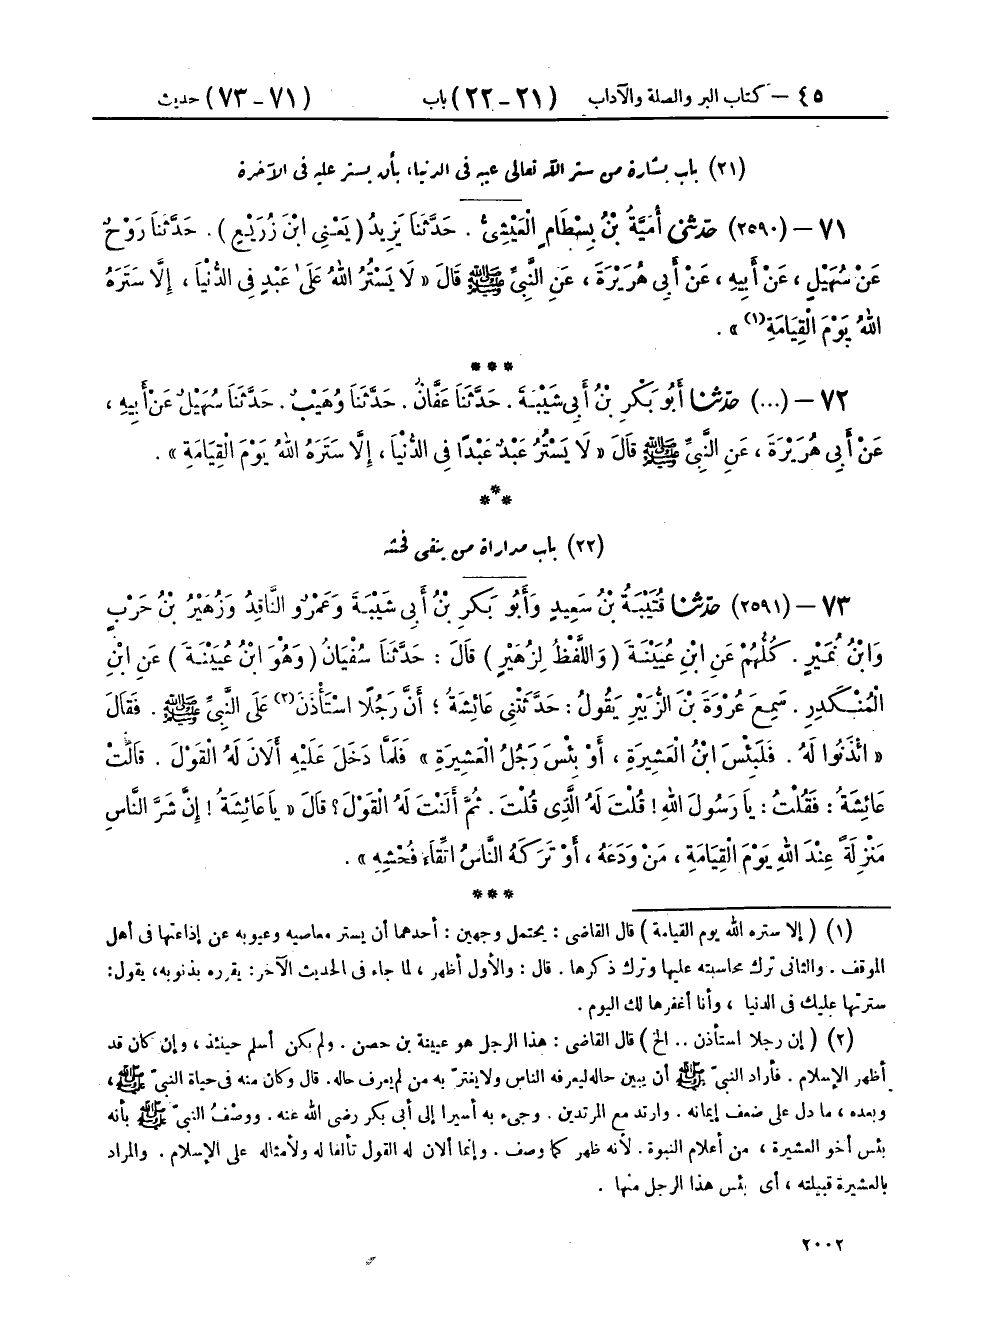 ٤٥ – كتاب البر والصلة والآداب (٢١ – ٢٢) باب (٧١ – ٧٣) حديث
(٢١) باب بشارة من ستر اللّه تعالى عيبه فى الدنيا، بأن يستر عليه فى الآخرة
٧١ – (٢٥٩٠) حدّثنى أُمَيَّةُ بْنُ بِسْطَامٍ الْعَيْشِىُّ . حَدَّثَنَا يَزِيدُ (يَعْنِى ابْنَ زُرَيْعٍ) . حَدَّثَنَا رَوْحٌ
عَنْ سُهَيْلٍ ، عَنْ أَبِيهِ ، عَنْ أَبِى هُرَيْرَةَ ، عَنِ النَّبِىِّ ﷺ قَالَ « لَا يَسْتُرُ اللهُ عَلَىٰ عَبْدٍ فِى الدُّنْيَا ، إِلَّا سَتَرَهُ
اللهُ يَوْمَ الْقِيَامَةِ(١) » .
* * *
٧٢ – (...) حدّثنا أَبُو بَكْرِ بْنُ أَبِى شَيْبَةَ . حَدَّثَنَا عَفَّانُ . حَدَّثَنَا وُهَيْبٌ . حَدَّثَنَا سُهَيْلٌ عَنْ أَبِيهِ ،
عَنْ أَبِى هُرَيْرَةَ ، عَنِ النَّبِىِّ ﷺ قَالَ « لَا يَسْتُرُ عَبْدٌ عَبْدًا فِى الدُّنْيَا ، إِلَّا سَتَرَهُ اللهُ يَوْمَ الْقِيَامَةِ » .
***
(٢٢) باب مداراة من يتقى فحشه
٧٣ – (٢٥٩١) حدّثنا قُتَيْبَةُ بْنُ سَعِيدٍ وَأَبُو بَكْرِ بْنُ أَبِى شَيْبَةَ وَعَمْرٌو النَّاقِدُ وَزُهَيْرُ بْنُ حَرْبٍ
وَابْنُ نُمَيْرٍ . كُلُّهُمْ عَنِ ابْنِ عُيَيْنَةَ (وَاللَّفْظُ لِزُهَيْرٍ) قَالَ : حَدَّثَنَا سُفْيَانُ (وَهُوَ ابْنُ عُيَيْنَةَ) عَنِ ابْنِ
الْمُنْكَدِرِ . سَمِعَ عُرْوَةَ بْنَ الزُّبَيْرِ يَقُولُ : حَدَّثَتْنِى عَائِشَةُ ؛ أَنَّ رَجُلًا اسْتَأْذَنَ(٢) عَلَى النَّبِىِّ ﷺ . فَقَالَ
« ائْذَنُوا لَهُ . فَلَبِئْسَ ابْنُ الْعَشِيرَةِ ، أَوْ بِئْسَ رَجُلُ الْعَشِيرَةِ » فَلَمَّا دَخَلَ عَلَيْهِ أَلَانَ لَهُ الْقَوْلَ . قَالَتْ
عَائِشَةُ : فَقُلْتُ : يَا رَسُولَ اللهِ ! قُلْتَ لَهُ الَّذِى قُلْتَ . ثُمَّ أَلَنْتَ لَهُ الْقَوْلَ ؟ قَالَ « يَا عَائِشَةُ ! إِنَّ شَرَّ النَّاسِ
مَنْزِلَةً عِنْدَ اللهِ يَوْمَ الْقِيَامَةِ ، مَنْ وَدَعَهُ ، أَوْ تَرَكَهُ النَّاسُ اتِّقَاءَ فُحْشِهِ » .
* * *
(١) (إلا ستره الله يوم القيامة) قال القاضى : يحتمل وجهين : أحدهما أن يستر معاصيه وعيوبه عن إذاعتها فى أهل
الموقف . والثانى ترك محاسبته عليها وترك ذكرها . قال : والأول أظهر ، لما جاء فى الحديث الآخر : يقرره بذنوبه، يقول:
سترتها عليك فى الدنيا ، وأنا أغفرها لك اليوم .
(٢) (إن رجلا استأذن .. الخ) قال القاضى : هذا الرجل هو عيينة بن حصن . ولم يكن أسلم حينئذ ، وإن كان قد
أظهر الإسلام . فأراد النبىّ ﷺ أن يبين حاله ليعرفه الناس ولا يغترّ به من لم يعرف حاله. قال وكان منه فى حياة النبىّ ﷺ،
وبعده ، ما دل على ضعف إيمانه . وارتد مع المرتدين . وجىء به أسيرا إلى أبى بكر رضى الله عنه . ووصْفُ النبىّ ﷺ بأنه
بئس أخو العشيرة ، من أعلام النبوة . لأنه ظهر كما وصف . وإنما ألان له القول تألفا له ولأمثاله على الإسلام . والمراد
بالعشيرة قبيلته ، أى بئس هذا الرجل منها .
٢٠٠٢